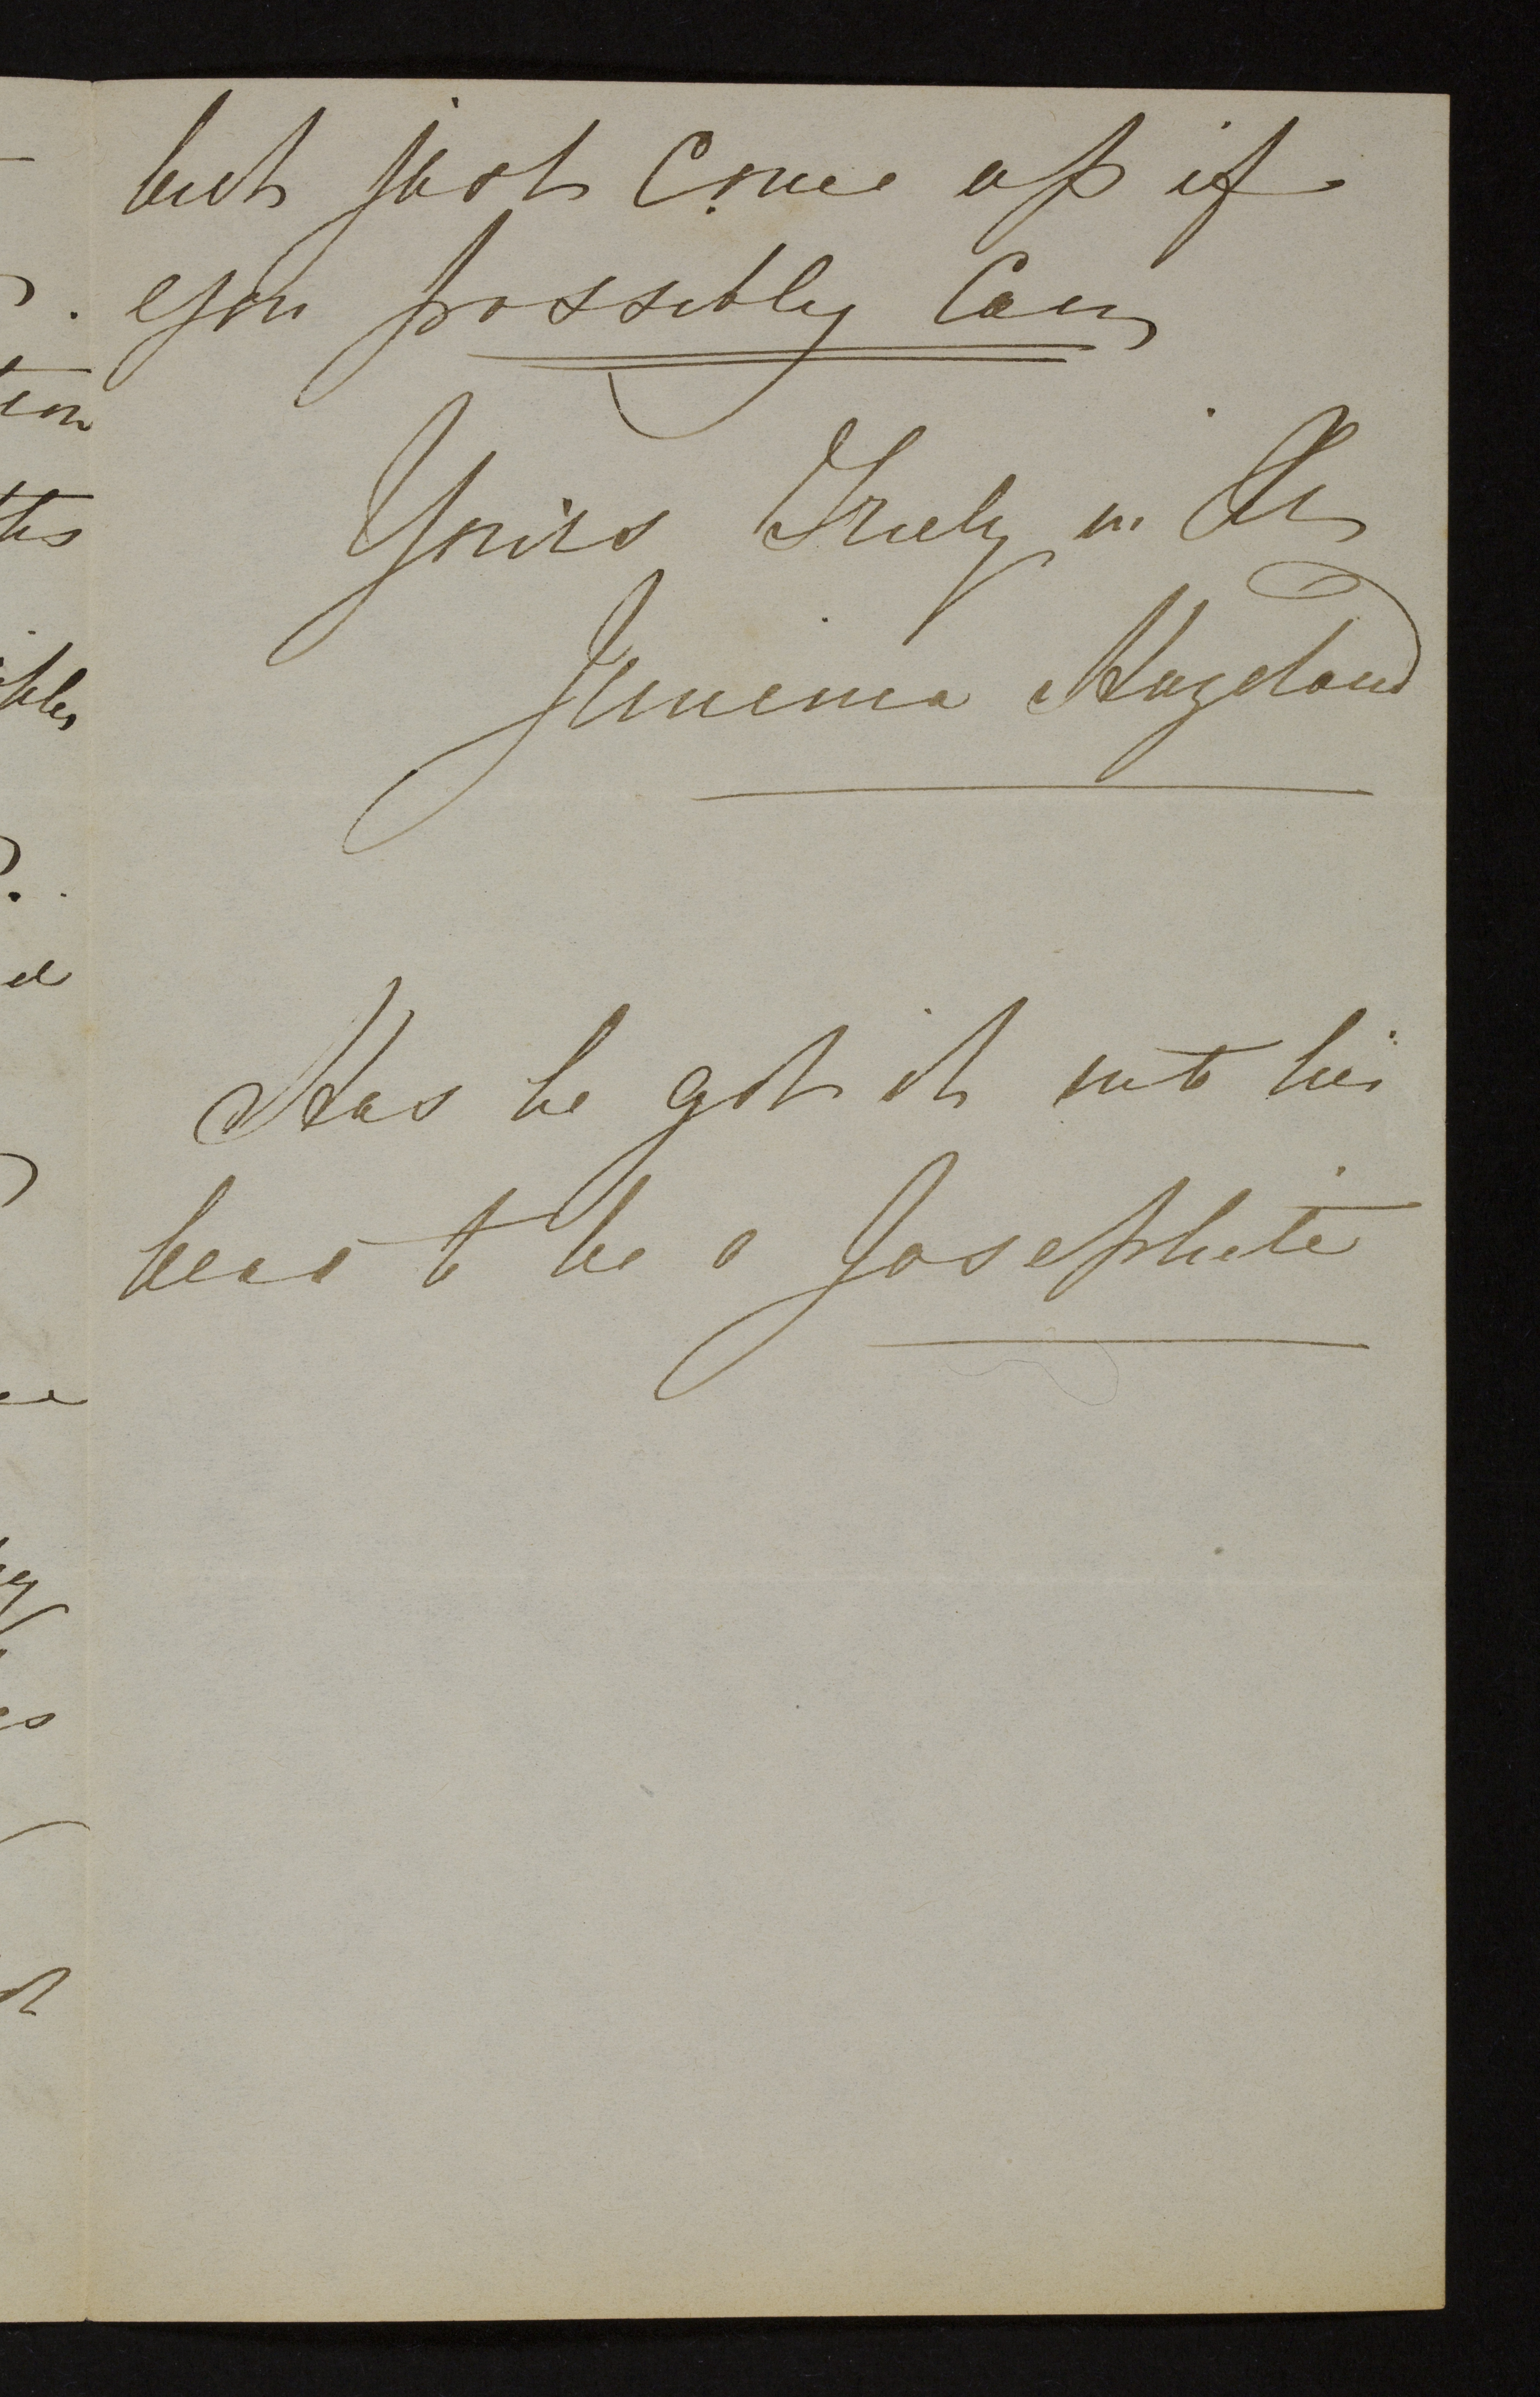 but just Come up if
you possibly Can
Yours Truly in
Jemima
Has he got it into his
head to be a Josephite